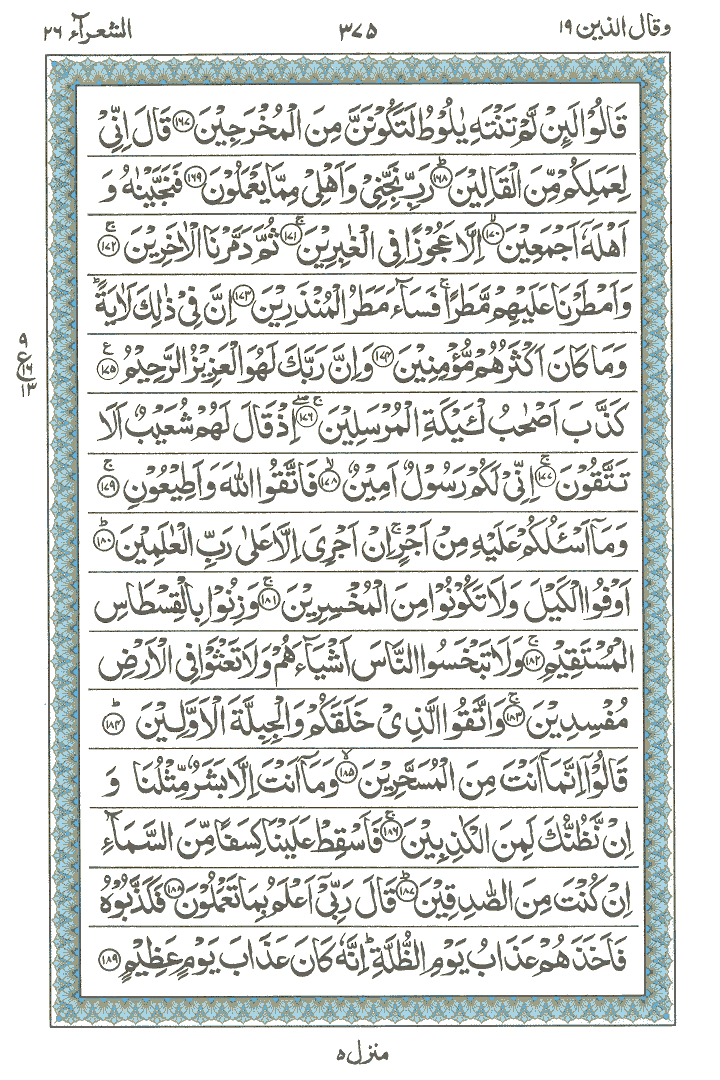 وقال الذين ١٩
٣٧٥
الشعرآء ٢٦
قَالُوْا لَىِٕنْ لَّمْ تَنْتَهِ يٰلُوْطُ لَتَكُوْنَنَّ مِنَ الْمُخْرَجِيْنَ ﴿١٦٧﴾ قَالَ اِنِّيْ
لِعَمَلِكُمْ مِّنَ الْقَالِيْنَ ؕ﴿١٦٨﴾ رَبِّ نَجِّنِيْ وَاَهْلِيْ مِمَّا يَعْمَلُوْنَ ﴿١٦٩﴾ فَنَجَّيْنٰهُ وَ
اَهْلَهٗۤ اَجْمَعِيْنَ ۙ﴿١٧٠﴾ اِلَّا عَجُوْزًا فِي الْغٰبِرِيْنَ ۚ﴿١٧١﴾ ثُمَّ دَمَّرْنَا الْاٰخَرِيْنَ ۚ﴿١٧٢﴾
وَاَمْطَرْنَا عَلَيْهِمْ مَّطَرًا ۚ فَسَآءَ مَطَرُ الْمُنْذَرِيْنَ ﴿١٧٣﴾ اِنَّ فِيْ ذٰلِكَ لَاٰيَةً ؕ
وَمَا كَانَ اَكْثَرُهُمْ مُّؤْمِنِيْنَ ﴿١٧٤﴾ وَاِنَّ رَبَّكَ لَهُوَ الْعَزِيْزُ الرَّحِيْمُ ﴿١٧٥﴾ ع
٩
ع
١٦
١٣
كَذَّبَ اَصْحٰبُ لْـَٔيْكَةِ الْمُرْسَلِيْنَ ۚۖ﴿١٧٦﴾ اِذْ قَالَ لَهُمْ شُعَيْبٌ اَلَا
تَتَّقُوْنَ ۚ﴿١٧٧﴾ اِنِّيْ لَكُمْ رَسُوْلٌ اَمِيْنٌ ۙ﴿١٧٨﴾ فَاتَّقُوا اللّٰهَ وَاَطِيْعُوْنِ ۚ﴿١٧٩﴾
وَمَاۤ اَسْـَٔلُكُمْ عَلَيْهِ مِنْ اَجْرٍ ۚ اِنْ اَجْرِيَ اِلَّا عَلٰى رَبِّ الْعٰلَمِيْنَ ؕ﴿١٨٠﴾
اَوْفُوا الْكَيْلَ وَلَا تَكُوْنُوْا مِنَ الْمُخْسِرِيْنَ ۚ﴿١٨١﴾ وَزِنُوْا بِالْقِسْطَاسِ
الْمُسْتَقِيْمِ ۚ﴿١٨٢﴾ وَلَا تَبْخَسُوا النَّاسَ اَشْيَآءَهُمْ وَلَا تَعْثَوْا فِي الْاَرْضِ
مُفْسِدِيْنَ ۚ﴿١٨٣﴾ وَاتَّقُوا الَّذِيْ خَلَقَكُمْ وَالْجِبِلَّةَ الْاَوَّلِيْنَ ؕ﴿١٨٤﴾
قَالُوْۤا اِنَّمَاۤ اَنْتَ مِنَ الْمُسَحَّرِيْنَ ۙ﴿١٨٥﴾ وَمَاۤ اَنْتَ اِلَّا بَشَرٌ مِّثْلُنَا وَ
اِنْ نَّظُنُّكَ لَمِنَ الْكٰذِبِيْنَ ۚ﴿١٨٦﴾ فَاَسْقِطْ عَلَيْنَا كِسَفًا مِّنَ السَّمَآءِ
اِنْ كُنْتَ مِنَ الصّٰدِقِيْنَ ؕ﴿١٨٧﴾ قَالَ رَبِّيْۤ اَعْلَمُ بِمَا تَعْمَلُوْنَ ﴿١٨٨﴾ فَكَذَّبُوْهُ
فَاَخَذَهُمْ عَذَابُ يَوْمِ الظُّلَّةِ ؕ اِنَّهٗ كَانَ عَذَابَ يَوْمٍ عَظِيْمٍ ﴿١٨٩﴾
منزل ٥